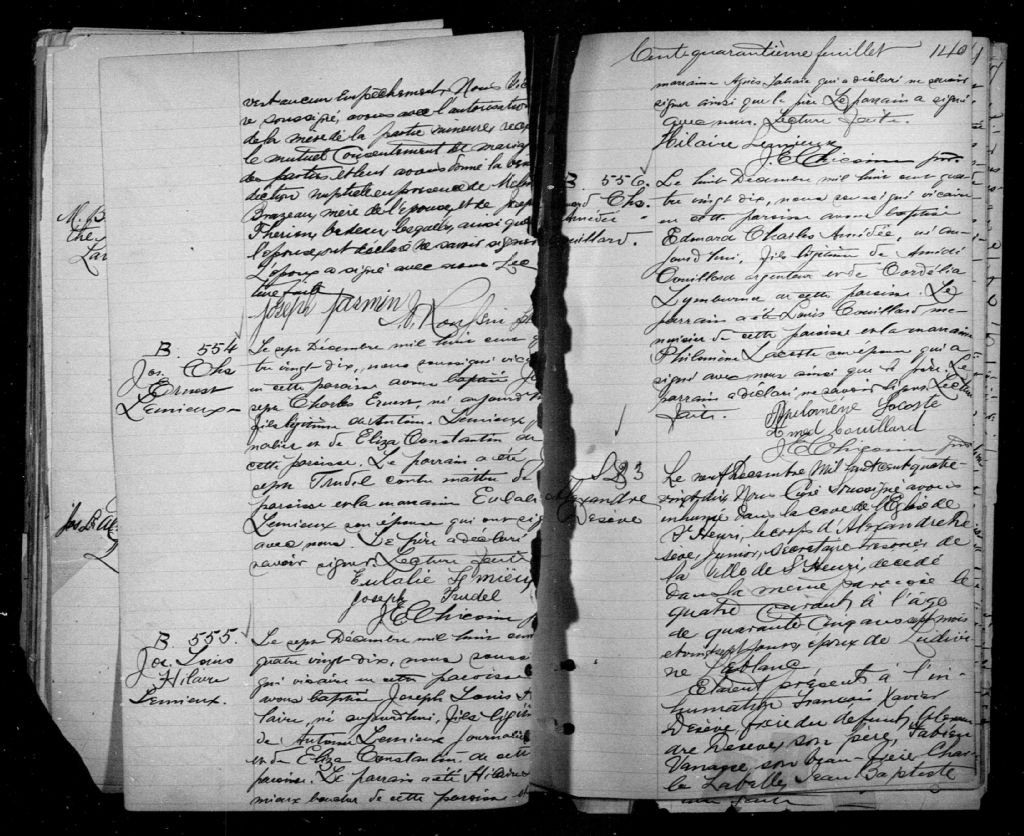 vert aucun Empêchement, Nous
re soussigné, avons avec l'autorisation
de la mère de la partie mineure, reçu
le mutuel Consentement de mariage
des parties et leur avons donné la béné
diction nuptiale en présence de
Brazeau, mère de l'épouse, et de
Therien, bedeau lesquels, ainsi que
l'épouse ont déclaré ne savoir signer
L'époux a signé avec nous. Lec
ture faite
Joseph Jasmin
B. 554
Jos. Chs
Ernest
Lemieux
Le sept Décembre mil huit cent
tre vingt dix, nous soussigné vic
en cette paroisse avons baptisé
seph Charles Ernest, né aujourd'
fils légitime de Antoine Lemieux
nalier et de Eliza Constantin de
cette paroisse. Le parrain a été
seph Trudel contre maître de
paroisse et la marraine Eulali
Lemieux son épouse qui ont sig
avec nous. Le père a déclaré
savoir signer. Lecture faite
Eulalie Lemieux
Joseph Trudel
J E Chicoine
B. 555.
Jos. Louis
Hilaire
Lemieux.
Le sept Décembre mil huit cent
quatre vingt dix, nous sous
gné vicaire en cette paroisse
avons baptisé Joseph Louis
laire, né aujourd'hui, fils légiti
de Antoine Lemieux journalier
et de Eliza Constantin de cette
paroisse. Le parrain a été Hilaire
mieux boucher de cette paroisse et
M. B
Cent quarantième feuillet 140
marraine Agnès qui a déclaré ne savoir
signer ainsi que le père. Le parrain a signé
avec nous. Lecture faite.
Hilaire Lemieux
J E Chicoine ptre.
B. 556.
Chs.
médée
ouillard.
Le huit Décembre mil huit cent qua
tre vingt dix, nous soussigné vicaire
en cette paroisse avons baptisé
Edmond Charles Amédée, né au
jourd'hui, fils légitime de Amédé
Couillard argenteur et de Cordélia
Lymburner de cette paroisse. Le
parrain a été Louis Couillard me
nuisier de cette paroisse et la marraine
Philomène Lacoste son épouse qui a
signé avec nous ainsi que le père. Le
parrain a déclaré ne savoir signer. Lecture
faite.
Philomène Lacoste
Amed Couillard
J E Chicoine ptre
S. 23
Alexandre
Desève
Le neuf Décembre Mil huit cent quatre-
vingt dix Nous Curé Soussigné avons
inhumé dans la cave de l'Eglise de
St Henri, le corps d'Alexandre De
sève, Junior, Secrétaire Trésorier de
la Ville de St Henri, décédé
dans la même paroisse le
quatre courant à l'âge
de quarante cinq ans sept mois
et vingt sept jours, époux de Ludivi
ne Leblanc.
Étaient présents à l'in
humation François Xavier
Desève, frère du défunt, Alexan
dre Desève son père, Fabien
Vanasse, son beau-frère, Char
les Labelle, Jean Baptiste